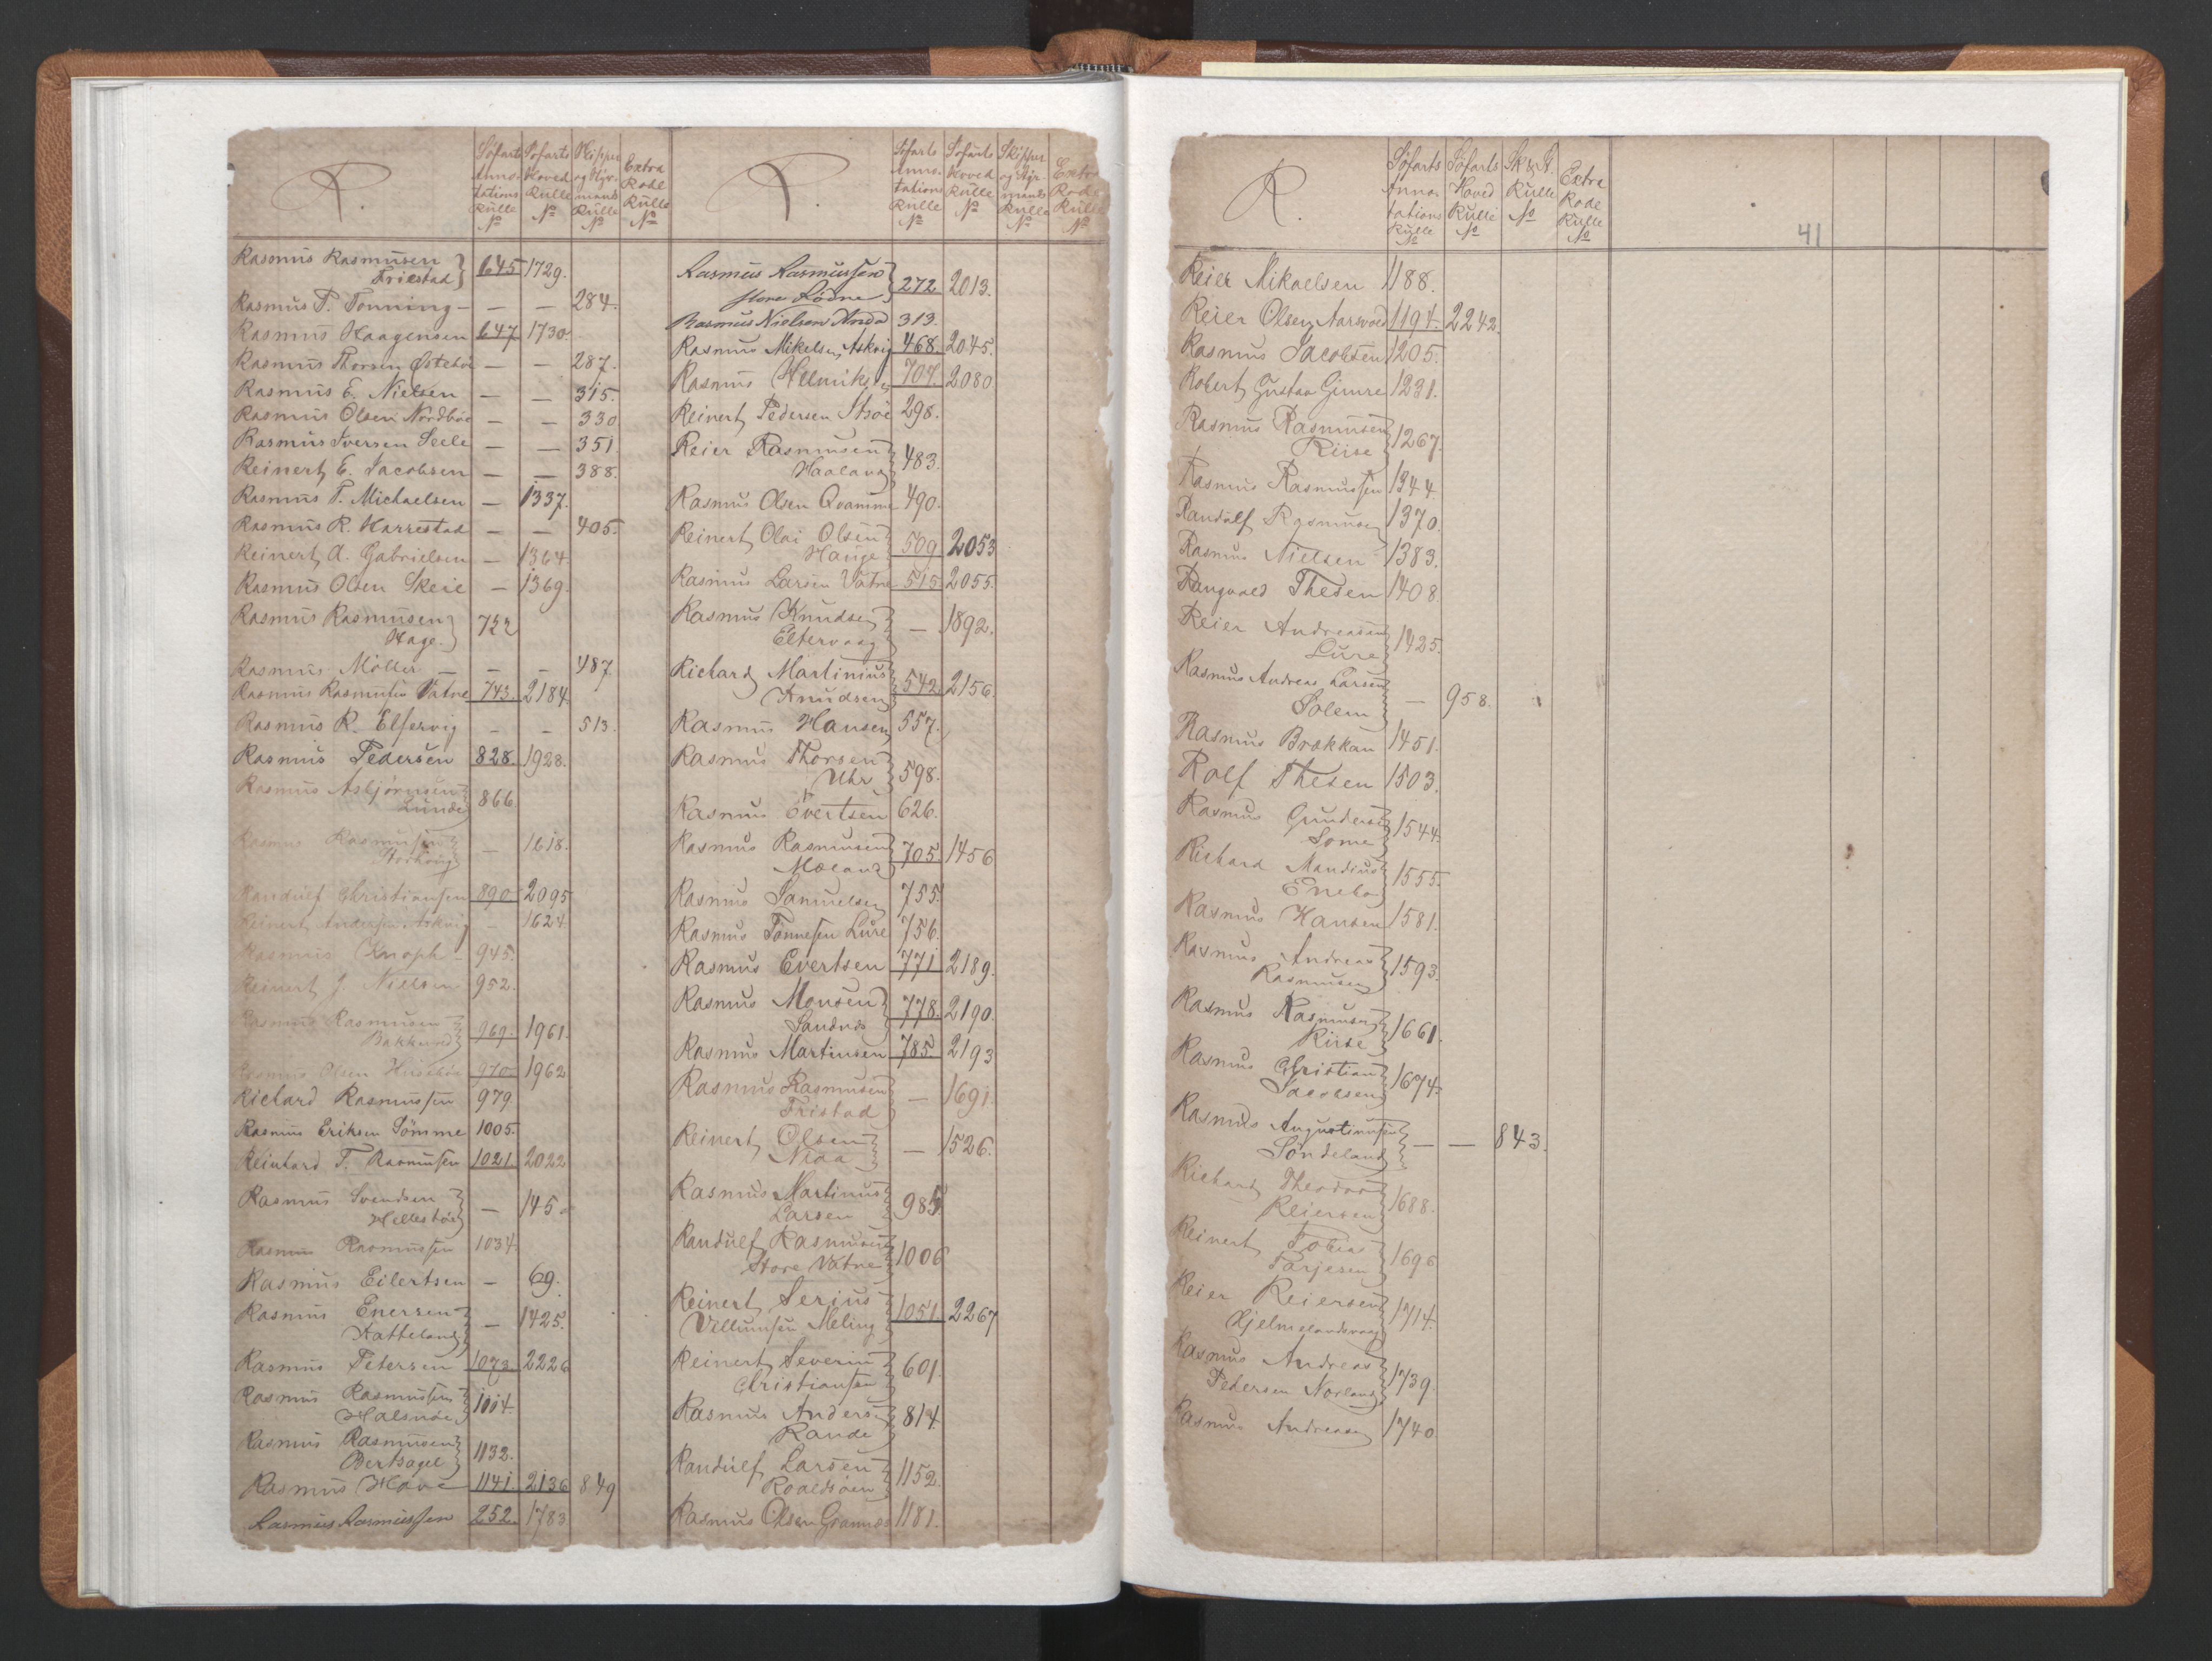 R.
Søfarts Annotations Rulle No
Søfarts Hoved Rulle No
Skipper og Styrmands Rulle No
Extra Rode Rulle No
Rasmus Rasmusen
Friestad } 645 1729.
Rasmus T. Tonning - — — 284.
Rasmus Haagensen 647 1730.
Rasmus Thorsen Østebø — — 287.
Rasmus E. Nielsen — — 315.
Rasmus Olsen Nordbøe — — 330
Rasmus Iversen Seele — — 351.
Reinert E. Jacobsen — — 388.
Rasmus T. Michaelsen — 1337.
Rasmus R. Harrestad — — 405.
Reinert A. Gabrielsen — 1364.
Rasmus Olsen Skeie — 1369.
Rasmus Rasmusen
Hage. } 722
Rasmus Möller — — — 487
Rasmus Rasmusen Vatne 743. 2184.
Rasmus R. Elfervig — — 513.
Rasmus Pedersen 828. 1928.
Rasmus Asbjørnsen
Lunde } 866.
Rasmus Rasmusen
Storhaug } — 1618.
Randulf Christiansen 890 2095
Reinert Andersen Askvig — 1624.
Rasmus Knoph - 945.
Reinert J. Nielsen 952.
Rasmus Rasmusen
Bakkevold } 969. 1961.
Rasmus Olsen Husebø 970 1962
Richard Rasmussen 979.
Rasmus Eriksen Sömme 1005.
Reinhard T. Rasmusen 1021. 2022
Rasmus Svendsen
Hellestø } — 145.
Rasmus Rasmussen 1034.
Rasmus Eilertsen — 69.
Rasmus Enersen
Hatteland } — 1425.
Rasmus Petersen 1073. 2226
Rasmus Rasmussen
Halsnøe } 1014.
Rasmus Rasmusen
Bertsagel } 1132.
Rasmus Hove 1141. 2136 849
Rasmus Rasmussen 252. 1783
R.
Søfarts Annotations Rulle No
Søfarts Hoved Rulle No
Skipper og Styrmands Rulle No
Extra Rode Rulle No
Rasmus Rasmussen
store Lødne } 272 2013.
Rasmus Nielsen Anda 313.
Rasmus Mikelsen Askvig 468. 2045.
Rasmus Helmiksen 704. 2080
Reinert Pedersen Strøe 298.
Reier Rasmusen
Haaland } 483.
Rasmus Olsen Qvamme 490.
Reinert Olai Olsen
Hauge } 509 2053
Rasmus Larsen Vatne 515 2055.
Rasmus Knudsen
Eltervaag } — 1892.
Richard Martinius
Knudsen } 542. 2156.
Rasmus Hansen 557.
Rasmus Thorsen
Uhr } 598.
Rasmus Evertsen 626.
Rasmus Rasmusen
Mæland } 705. 1456
Rasmus Samuelsen 755.
Rasmus Tønnesen Lure 756.
Rasmus Evertsen 771 2189.
Rasmus Monsen
Sandnæs } 778. 2190.
Rasmus Martinsen 785. 2193
Rasmus Rasmusen
Fristad } — 1691.
Reinert Olsen
Niaa } — 1526.
Rasmus Martinus
Larsen } 985.
Randulf Rasmusen
Store Vatne } 1006
Reinert Serius
Villumsen Meling } 1051. 2267
Reinert Severin
Christiansen } 601.
Rasmus Andersen
Rande } 814.
Randulf Larsen
Roaldsøen } 1152.
Rasmus Olsen Grannæs 1181.
R.
Søfarts Annotations Rulle No
Søfarts Hoved Rulle No
Sk & St. Rulle No
Extra Rode Rulle No
41
Reier Mikaelsen 1188.
Reier Olsen Aarsvold 1194. 2242.
Rasmus Jacobsen 1205.
Robert Gustav Gimre 1231.
Rasmus Rasmusen
Riise } 1267.
Rasmus Rasmussen 1344.
Randulf Rasmusen 1370.
Rasmus Nielsen 1383.
Rangvald Thesen 1408.
Reier Andreasen
Lure } 1425.
Rasmus Andreas Larsen
Solem } — 958.
Rasmus Brekkan 1451.
Rolf Thesen 1503.
Rasmus Gundersen
Some } 1544.
Richard Mandius
Enebo } 1555.
Rasmus Hansen 1581.
Rasmus Andreas
Rasmusen } 1593.
Rasmus Rasmusen
Riise } 1661.
Rasmus Christian
Jacobsen } 1674.
Rasmus Augustinusen
Søndeland } — — 843.
Richard Theodor
Reiersen } 1688.
Reinert Tobias
Tarjesen } 1696
Reier Reiersen
Hjelmelandsvaag } 1714.
Rasmus Andreas
Petersen Norland } 1739.
Rasmus Andreasen 1740.